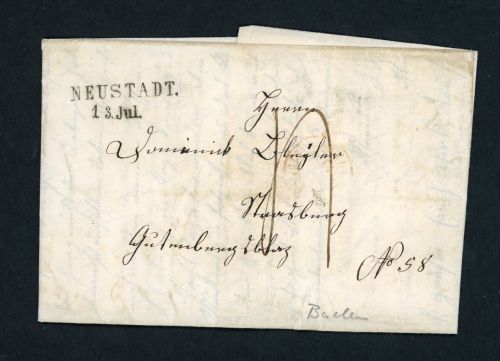 NEUSTADT.
13. Jul.
Herrn
Dominick
Strasburg
Gutenbergsblaz
No 58
Baden